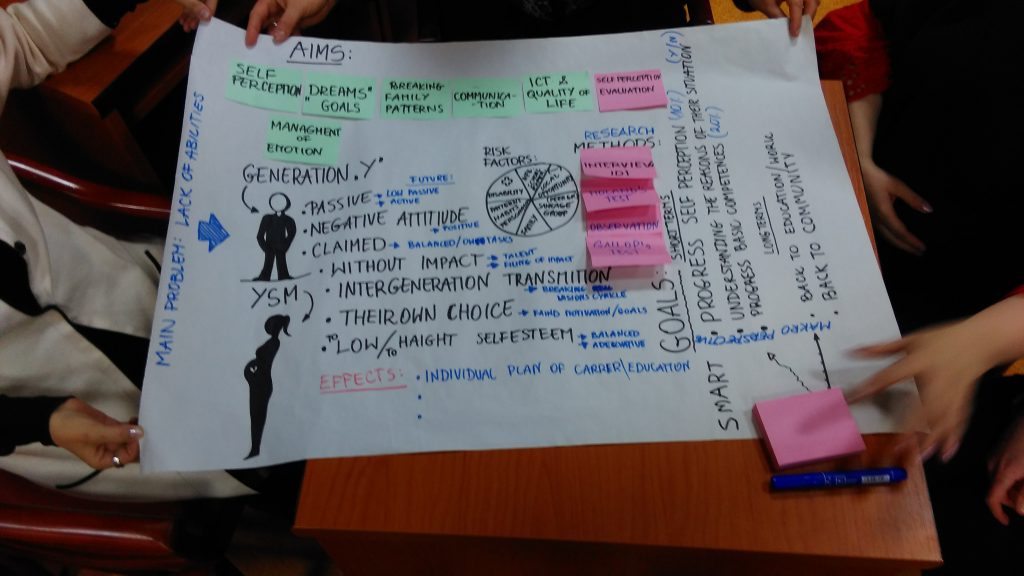 AIMS:
SELF
PERCEPTION
"DREAMS"
GOALS
BREAKING
FAMILY
PATTERNS
COMMUNICA-
TION
ICT &
QUALITY OF
LIFE
SELF PERCEPTION
EVALUATION
MANAGMENT
OF
EMOTION
MAIN PROBLEM: LACK OF ABILITIES
GENERATION "Y"
FUTURE:
• PASSIVE → LOW PASSIVE
→ ACTIVE
• NEGATIVE ATTITUDE
→ POSITIVE
• CLAIMED → BALANCED/
• WITHOUT IMPACT → TALENT
→ OF IMPACT
• INTERGENERATION TRANSMITION
→ BREAKING
YSM
• THEIR OWN CHOICE → FAIND MOTIVATION/GOALS
• TO LOW/TO HAIGHT SELFESTEEM → BALANCED
→ ADEKVATIVE
EFFECTS:
• INDIVIDUAL PLAN OF CARRER\EDUCATION
RISK
FACTORS:
DISABILITY
GROUP
RESEARCH
METHODS:
INTERVIEW
TEST
OBSERVATION
TEST
SMART GOALS
SHORT TERMS
• PROGRESS SELF PERCEPTION
• UNDERSTANDING THE REASONS OF THEIR SITUATION (Y/N)
• PROGRESS BASIC COMPETENCES (20%)
LONGTERMS
• BACK TO EDUCATION/WORK
• BACK TO COMMUNITY
MAKRO
PERSPECTIVE